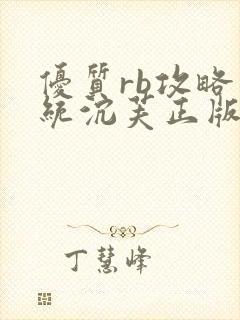 優質rb攻略
統沈芙正版
丁慧峰